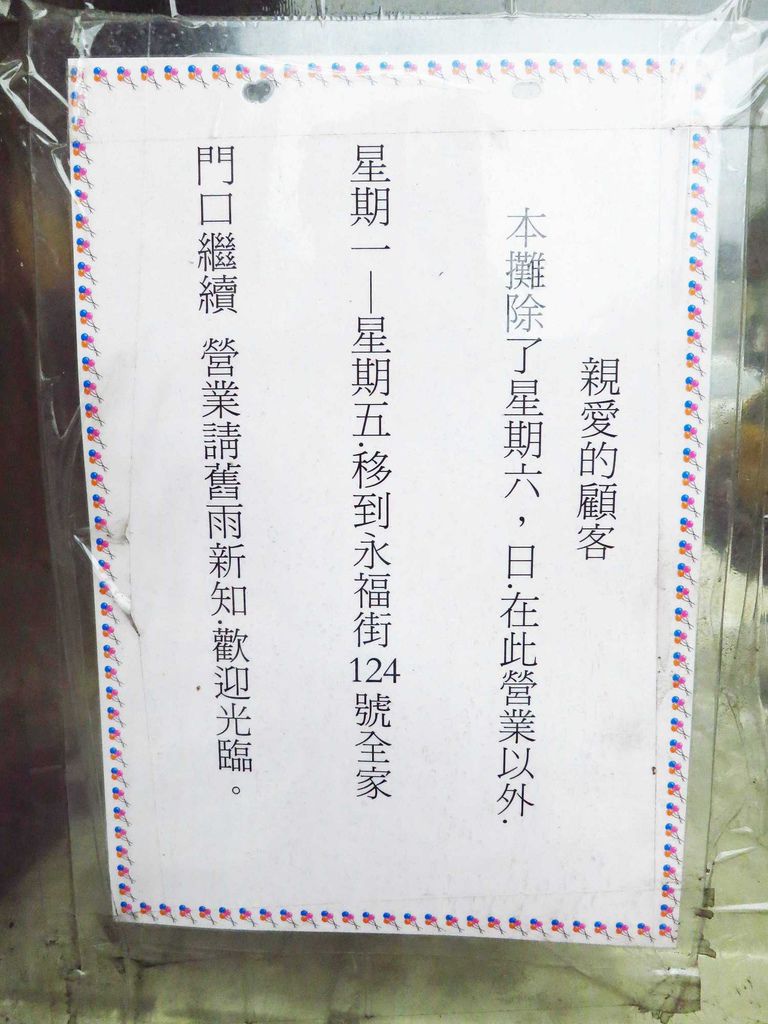 親愛的顧客
本攤除了星期六，日.在此營業以外.
星期一—星期五.移到永福街124號全家
門口繼續 營業請舊雨新知.歡迎光臨。